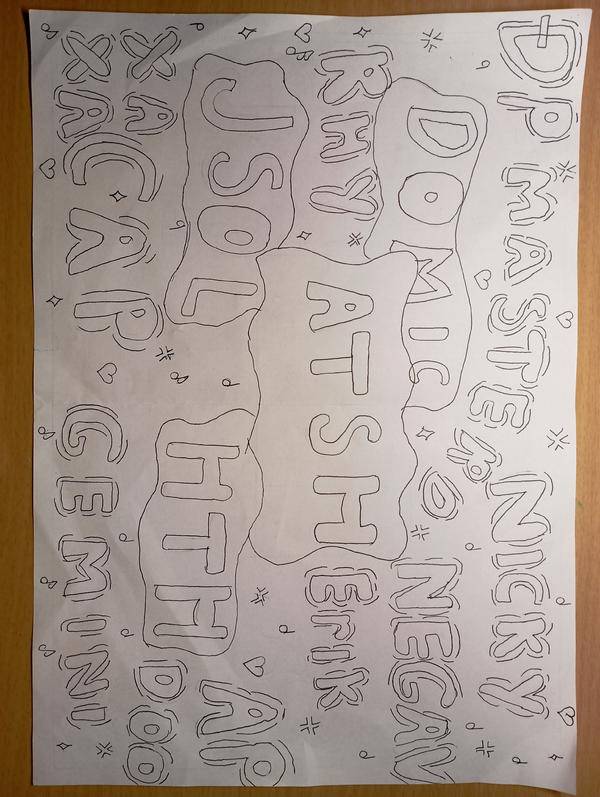 DP MASTER NICKY
DOMIC NEGAV
RHY ATSH Erik
JSOL HTH AP
XA DOO
XA CAP GEMINI